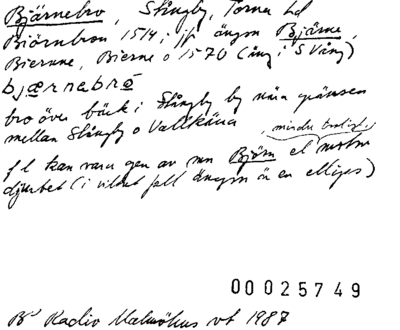 Bjärnebro, Stångby, Torna hd
Biörnbron 1514; jfr ängen Bjärne,
Bierne o 1570 (äng i S Vång)
bjærnebrō
bro över bäck i Stångby by nära gränsen
mellan Stångby o Vallkärra, mindre troligt
f l kan vara gen av mn Björn el motsv
djurbet (i vilket fall ängen är en ellips)
00025749
Radio Malmöhus vt 1987